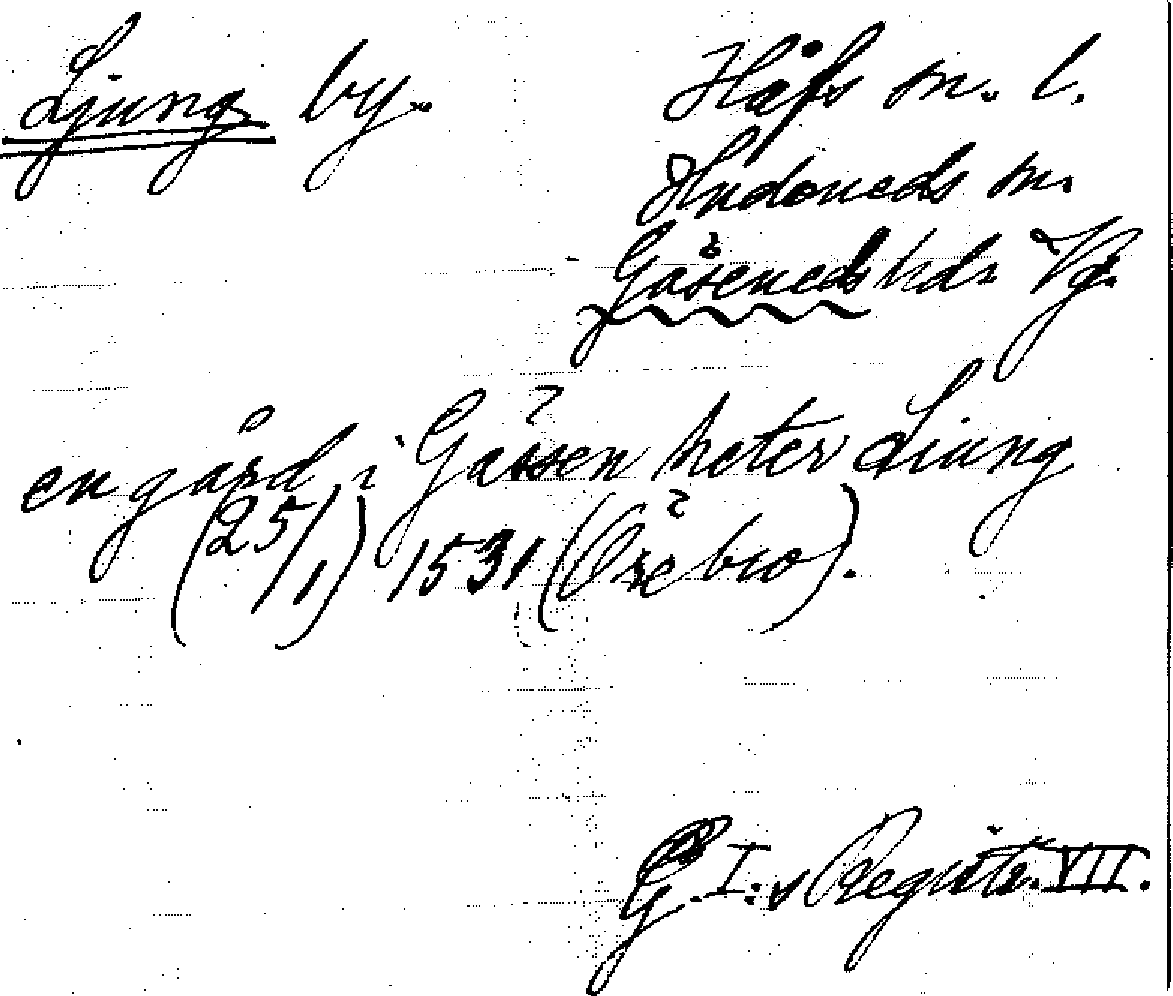 Ljung by.
Håfs sn. l.
Hudeneds sn.
Gäseneds hd. Vg.
en gård i Gässen heter Liung
(25/1) 1531 (Örebro).
G. I:s Registr. VII.